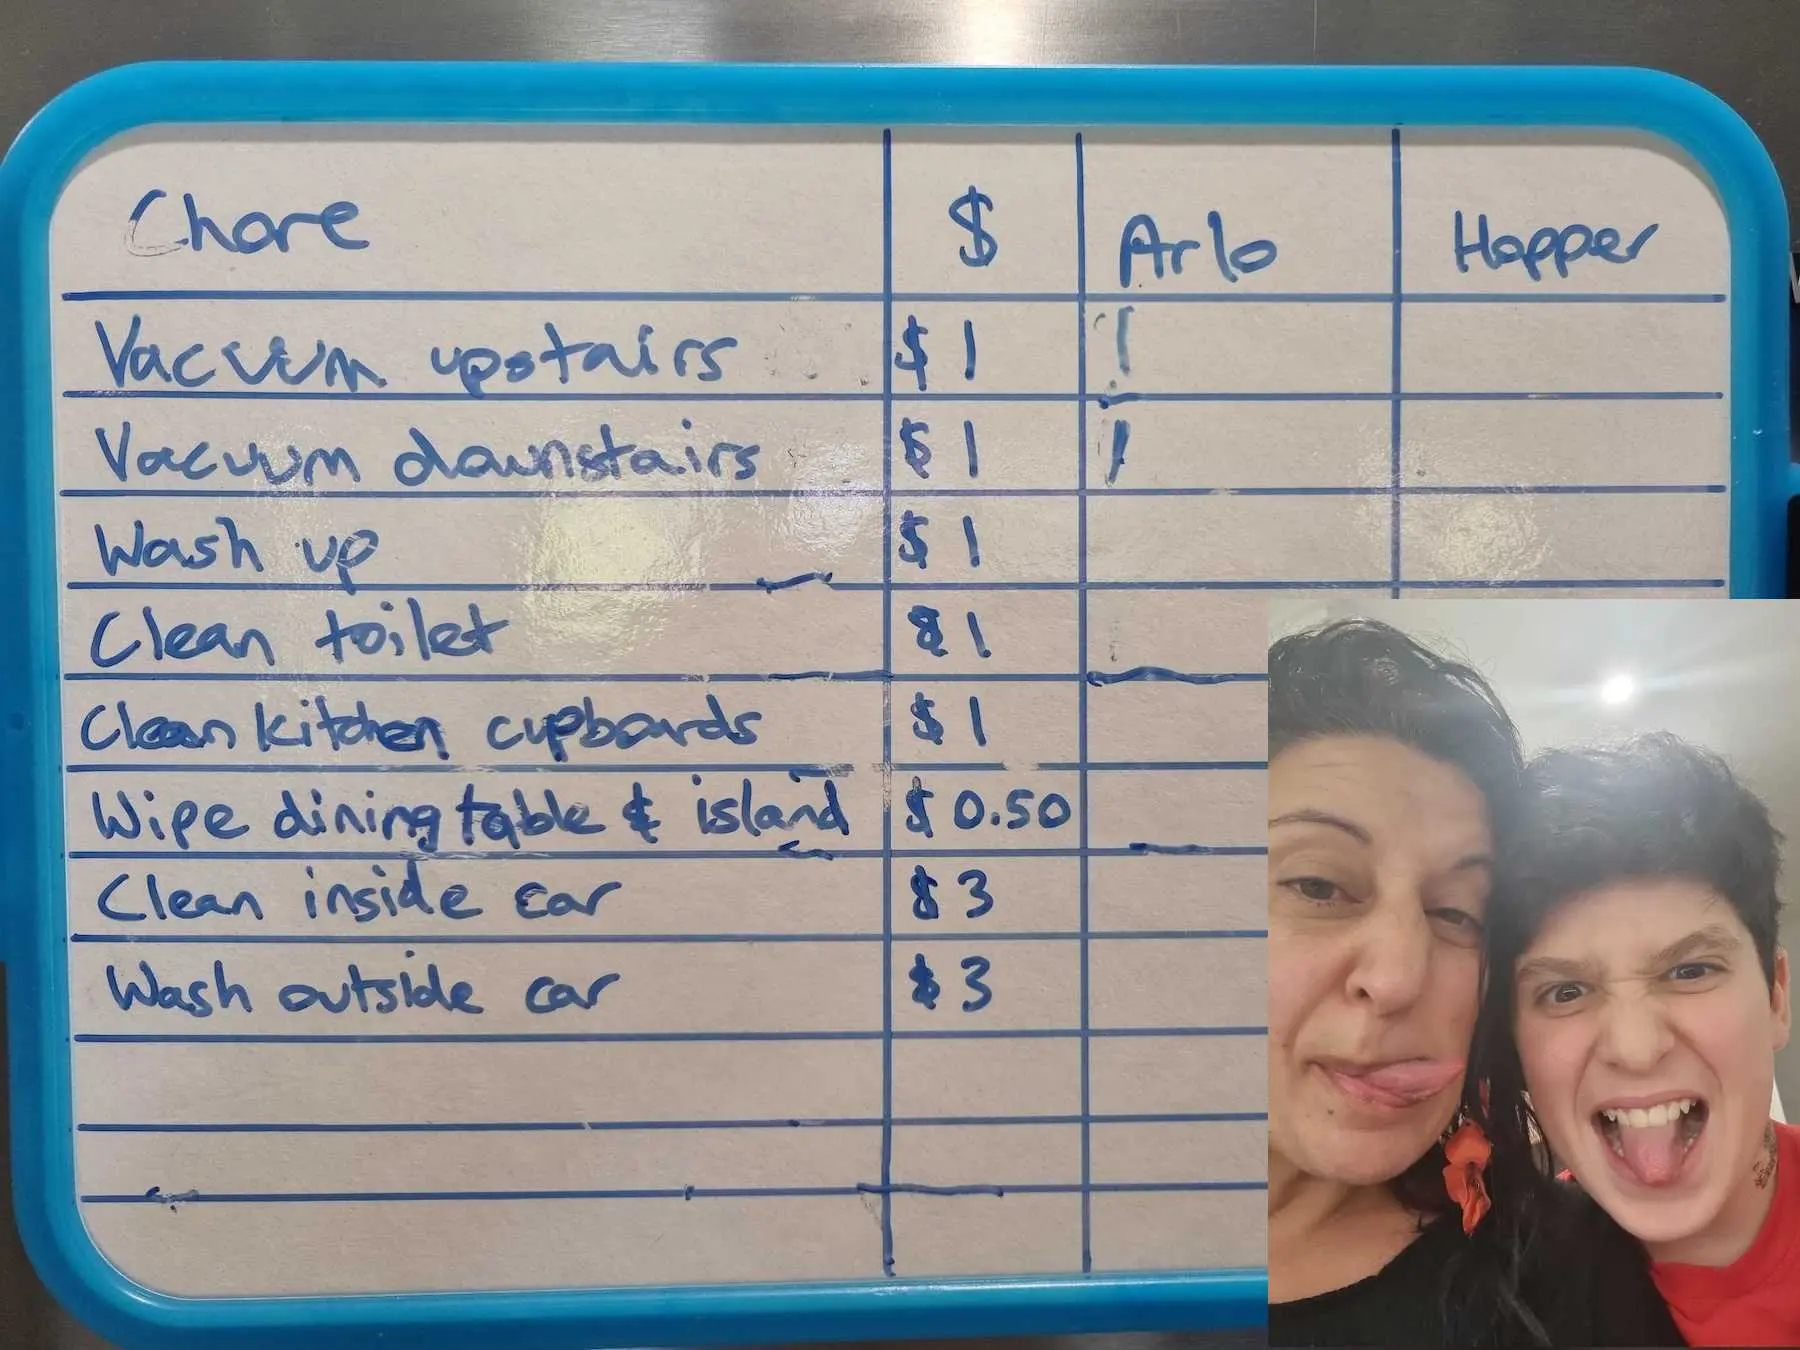 Chore $ Arlo Hopper
Vacuum upstairs $1 1
Vacuum downstairs $1 1
Wash up $1
Clean toilet $1
Clean kitchen cupboards $1
Wipe dining table & island $0.50
Clean inside car $3
Wash outside car $3